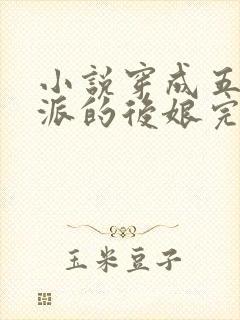 小說穿成五
派的後娘完
玉米豆子